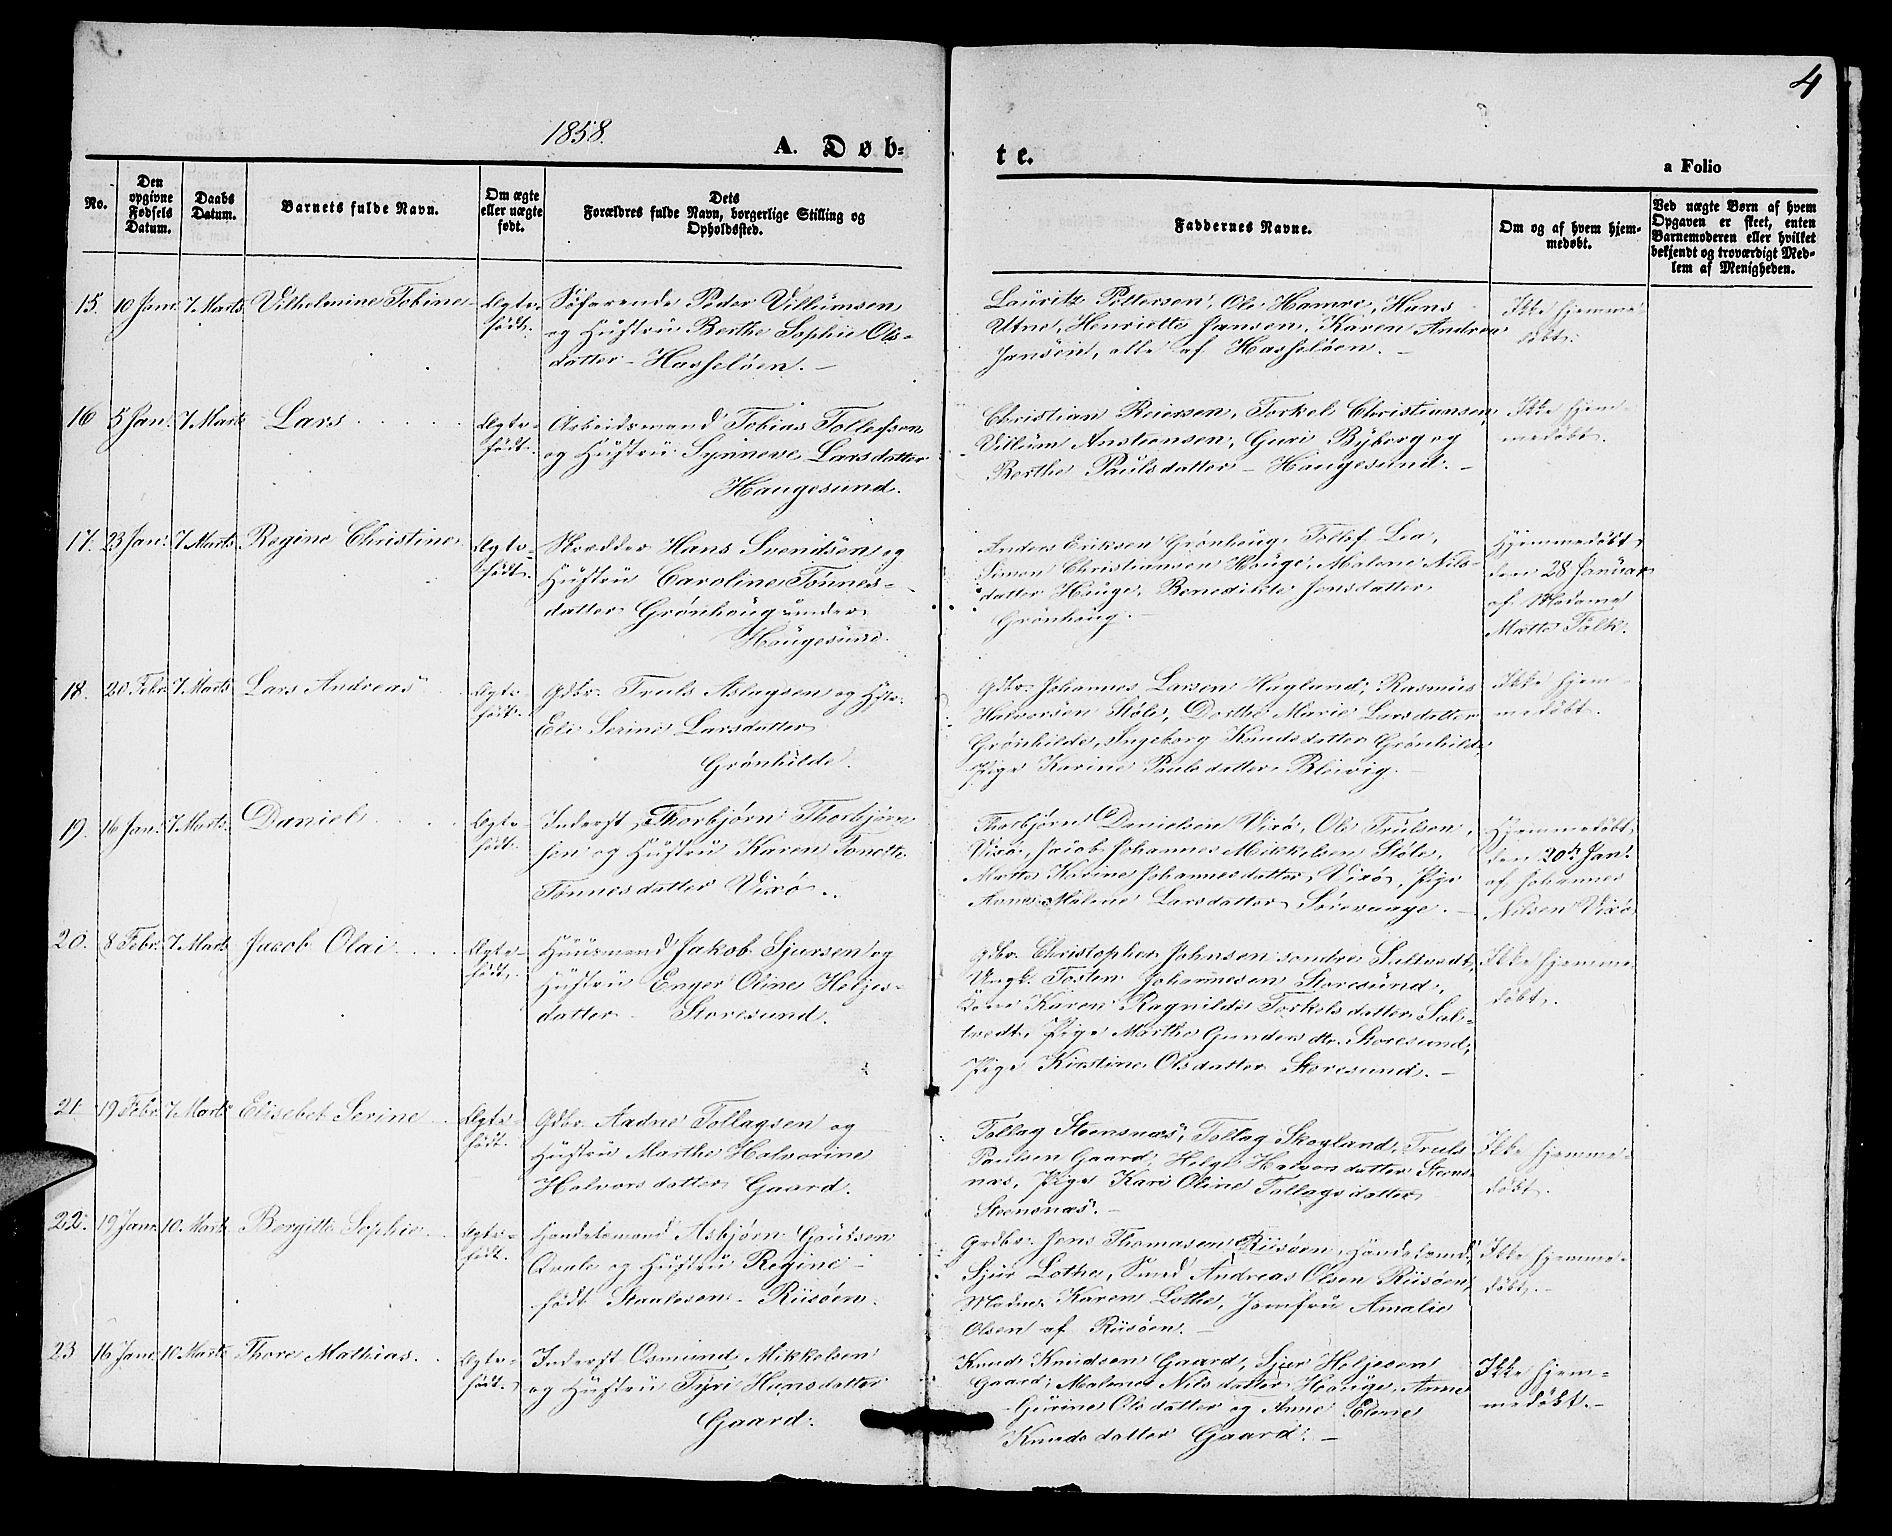 4
1858.
A. Døb=
te.
a Folio
No.
Den opgivne Fødsels Datum.
Daabs Datum.
Barnets fulde Navn.
Om ægte eller uægte født.
Dets Forældres fulde Navn, borgerlige Stilling og Opholdssted.
Faddernes Navne.
Om og af hvem hjemmedøbt.
Ved uægte Børn af hvem Opgaven er skeet, enten Barnemoderen eller hvilket bekjendt og troværdigt Medlem af Menigheden.
15. 10 Jan. 7 Marts Vilhelmine Tobine Ægte-
født.
Søfarende Peder Villumsen
og Hustru Berthe Sophie Ols-
datter - Hasseløen. -
Lauritz Pettersen, Ole Hamre, Hans
Utne, Henriette Jansen, Karen Andrea
Jansen, alle af Hasseløen. -
Ikke hjemme-
døbt.
16 5 Jan. 7 Marts Lars Ægte-
født.
Arbeidsmand Tobias Tollefsen
og Hustru Synneve Larsdatter
Haugesund.
Christian Reiersen, Torkel Christiansen,
Villum Anstensen, Guri Byborg og
Berthe Paulsdatter - Haugesund. -
Ikke hjem-
medøbt.
17. 23 Jan. 7 Marts Regine Christine Ægte-
født.
Skredder Hans Svendsen og
Hustru Caroline Tønnes-
datter Grønhoug under
Haugesund.
Anders Eriksen Grønhaug, Tollef Lea,
Simon Christiansen Hauge, Malene Nils-
datter Hauge, Benedikte Jensdatter
Grønhaug. -
Hjemmedøbt
den 28 Januar
af Madame
Mætte Falk.
18. 20 Febr. 7 Marts Lars Andreas Ægte-
født.
Gdbr. Truls Aslagsen og Hstr.
Eli Serine Larsdatter
Grønhilde.
Gdbr. Johannes Larsen Hagland, Rasmus
Halvorsen Støle, Dorthe Marie Larsdatter
Grønhilde, Ingeborg Knudsdatter Grønhilde
Pige Karine Paulsdatter Bleivig. -
Ikke hjem-
medøbt.
19. 16 Jan. 7 Marts. Daniel Ægte-
født.
Inderst Thorbjørn Thorbjørn-
sen og Hustru Karen Tonette
Tønnesdatter Vixø.
Thorbjørn Danielsen Vixø, Ole Trulsen,
Vixø, Jacob Johannes Mikkelsen Støle,
Mætte Karine Johannesdatter Vixø, Pige
Anne Malene Larsdatter Sørevaage. -
Hjemmedøbt
den 20de Jan.
af Johannes
Nilsen Vixø
20. 8 Febr. 7 Marts Jacob Olai Ægte-
født.
Huusmand Jakob Sjursen og
Hustru Enger Oline Heljes-
datter Storesund.
Gdbr. Christopher Johnsen søndre Saltvedt,
Ungk. Tosten Johannesen Storesund,
Kone Karen Ragnilde Torkelsdatter Sal-
tvedt, Pige Marthe Gundersdtr. Storesund,
Pige Kirstine Olsdatter Storesund. -
Ikke hjemme-
døbt.
21. 19 Febr. 7 Marts Elisebet Serine Ægte-
født.
Gdbr. Aadne Tollagsen og
Hustru Marthe Halvorine
Halvorsdatter Gaard.
Tollag Steensnæs, Tollag Skogland, Truls
Paulsen Gaard, Helge Halvorsdatter Steens-
næs, Pige Kari Oline Tollagsdatter
Steensnæs. -
Ikke hjemme-
døbt.
22. 19 Jan. 10. Marts Bergitte Sophie Ægte-
født.
Handelsmand Asbjørn Gautsen
og Hustru Regine
født Staalesen - Riisøen.
Grdbr. Jens Thomasen Riisøen, Handelsmd.
Sjur Lothe, Smed Andreas Olsen Riisøen,
Madme. Karen Lothe, Jomfru Amalie
Olsen af Riisøen. -
Ikke hjemme-
døbt. -
23 16 Jan. 10 Marts Thore Mathias. Ægte-
født.
Inderst Osmund Mikkelsen
og Hustru Tyri Hansdatter
Gaard.
Knud Knudsen Gaard, Sjur Heljesen
Gaard, Malene Nilsdatter Hauge, Anne
Gurine Olsdatter og Anne Elene
Knudsdatter Gaard. -
Ikke hjem-
medøbt. -